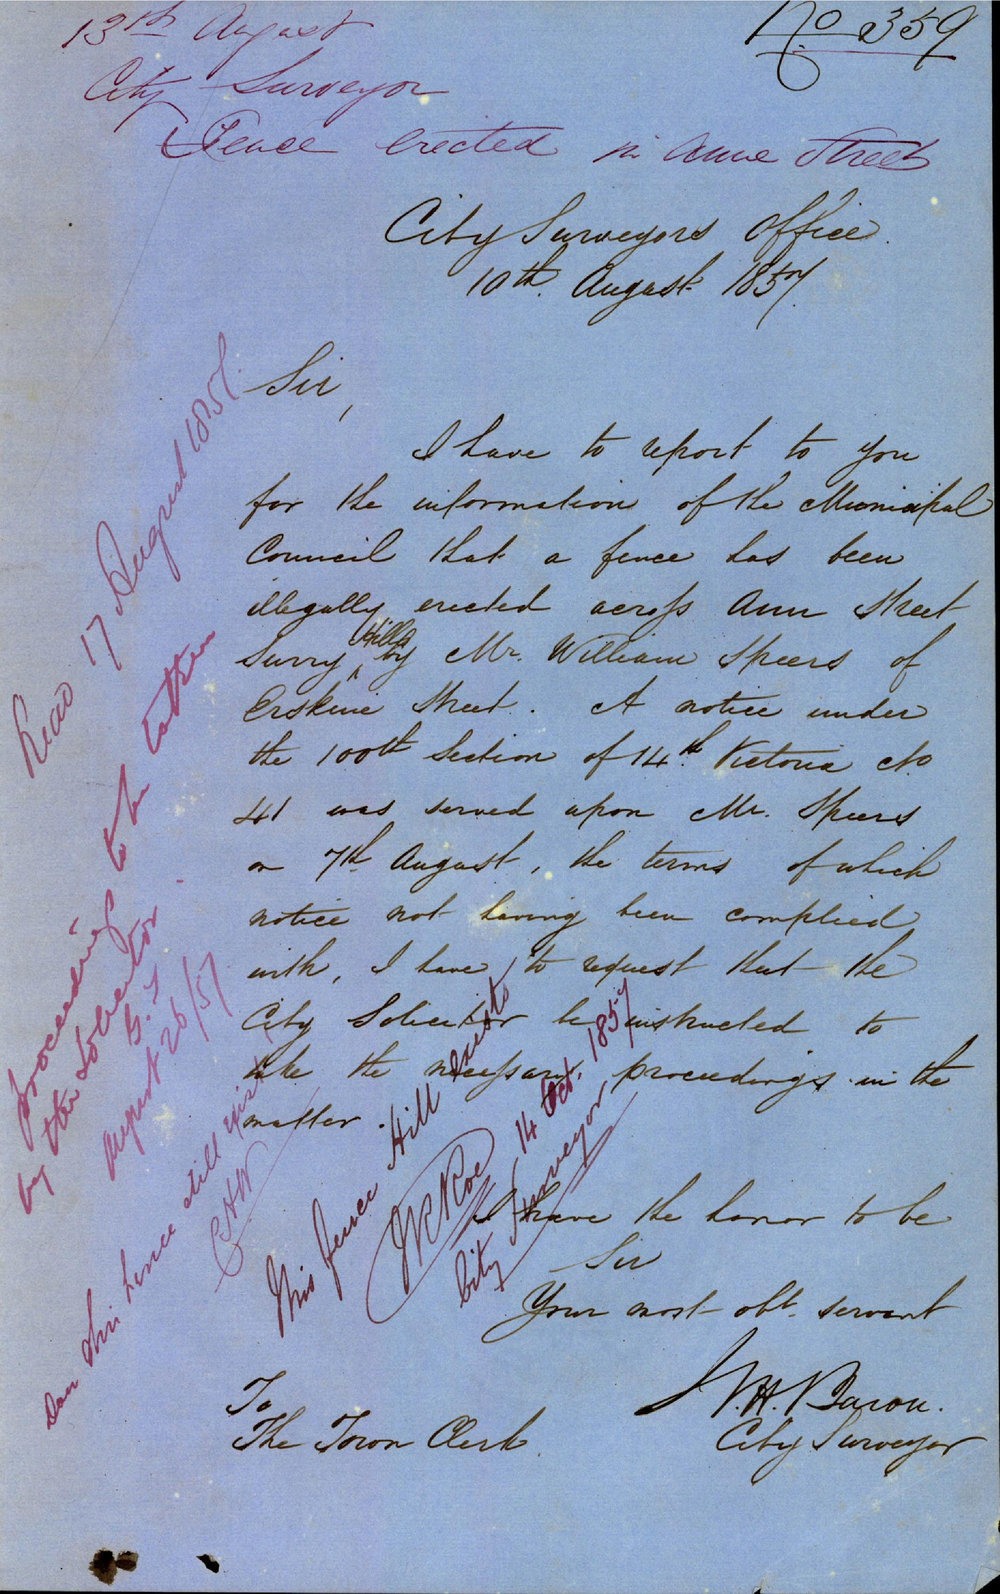 No 359
13th August
City Surveyor
Fence erected in Anne Street
City Surveyors Office.
10th August 1857.
Sir,
I have to report to you
for the information of the Municipal
Council that a fence has been
illegally erected across Ann Street
Surry Hills by Mr. William Speers of
Erskine Street. A notice under
the 100th Section of 14th Victoria No
41 was served upon Mr. Speers
on 7th August, the terms of which
notice not having been complied
with, I have to request that the
City Solicitor be instructed to
take the necessary proceedings in the
matter.
I have the honor to be
Sir
Your most obt. servant
W.H. Baron.
City Surveyor
To
The Town Clerk
Read 17 August 1857.
proceedings to be taken
by the Solicitor
August 26/57
fence still exist
This fence still exists
14 Oct. 1857
City Surveyor